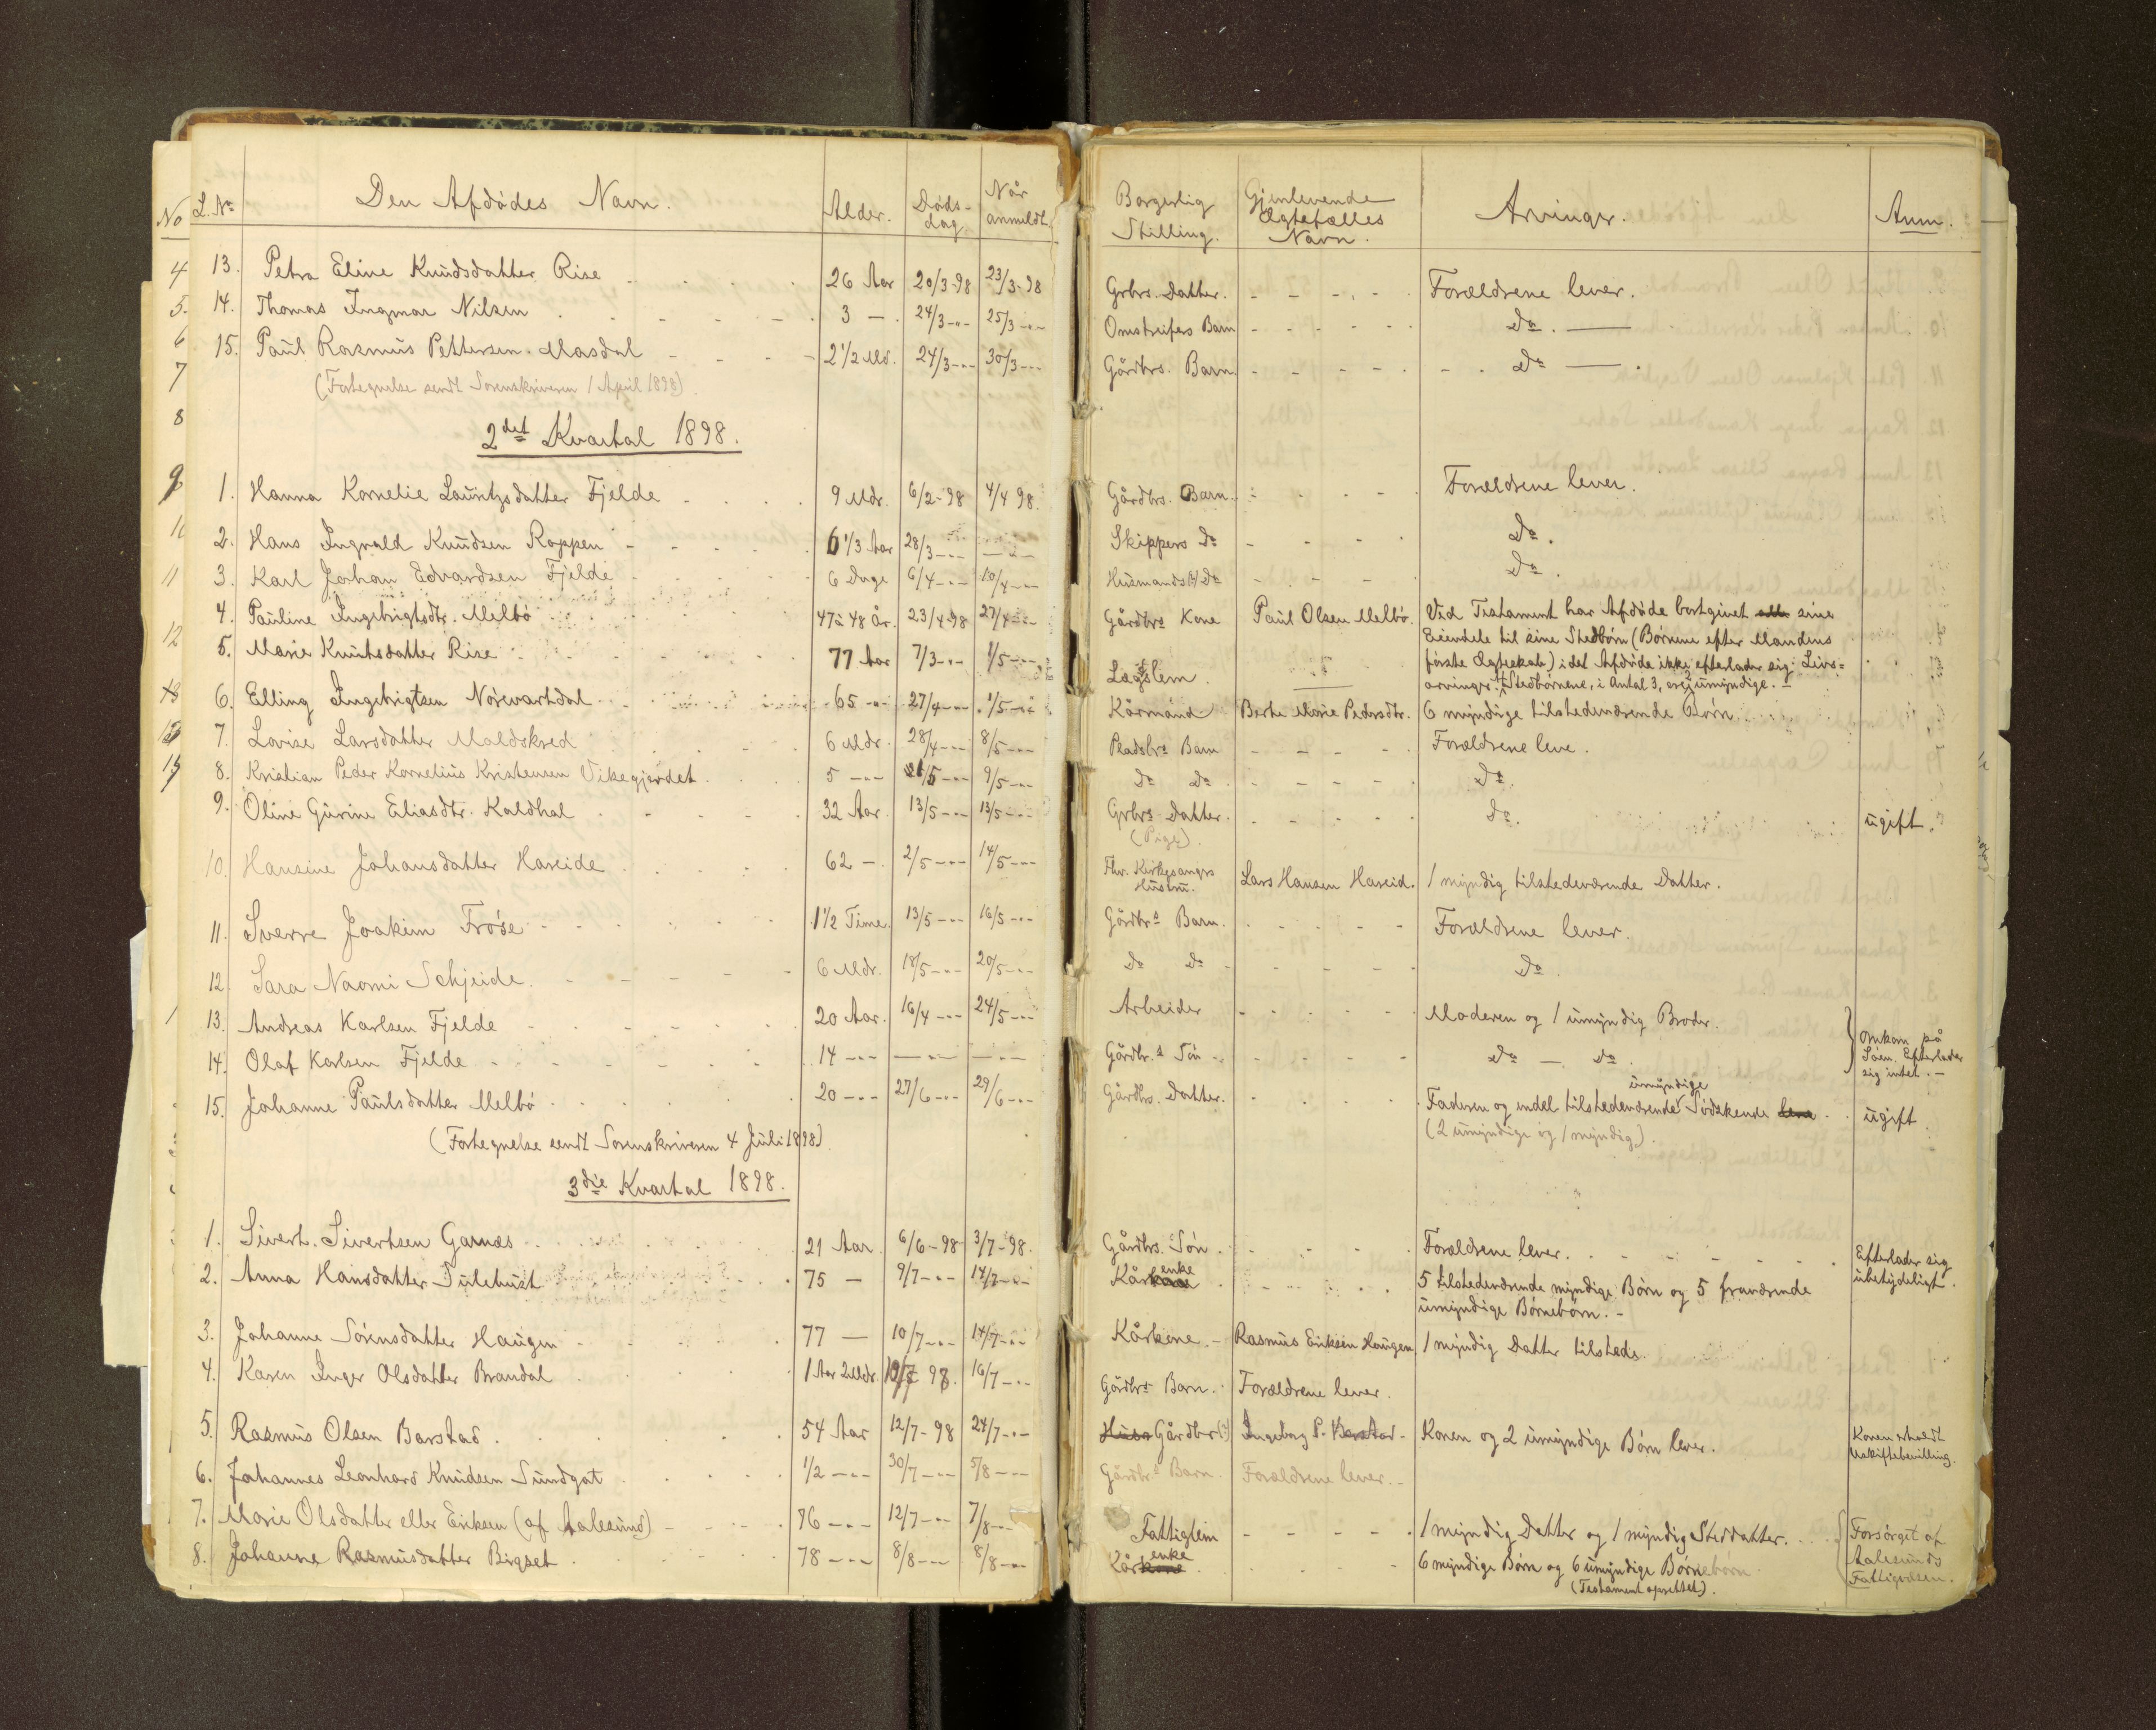 No L. No Den Afdødes Navn. Alder. Døds-dag Når anmeldt. Borgerlig Stilling. Gjenlevende Ægtefælles Navn. Arvinger. Anm.
13. Petra Eline Knudsdatter Rise 26 Aar 20/3-98 23/3-98 Grbrs. Datter. Forældrene lever.
14. Thomas Ingmar Nilsen 3 — 24/3 -"- 25/3 -"- Omstreifers Barn Do. —
15. Paul Rasmus Pettersen Masdal 2 1/2 Md. 24/3 -"- 30/3 -"- Gårdbrs. Barn. Do —
(Fortegnelse sendt Sorenskriveren 1 April 1898)
2det Kvartal 1898.
1. Hanna Kornelie Lauritzsdatter Fjelde 9 Mdr. 6/2-98 4/4 98. Gårdbrs. Barn. Forældrene lever.
2. Hans Ingvald Knudsen Roppen 6 1/3 Aar 28/3 -"- -"- Skippers Do Do.
3. Karl Johan Edvardsen Fjelde 6 Duge 6/4 -"- 10/4 -"- Husmands Do Do.
4. Pauline Ingebrigtsdtr. Melbø 47 à 48 År. 23/4-98 27/4 -"- Gårdbrs Kone Paul Olsen Melbø. Ved Testament har Afdøde bortgivet alle sine
Eiendele til sine Stedbørn (Børnene efter Mandens
første Ægteskab) idet Afdøde ikke efterlader sig Livs=
arvinger. Stedbørnene, i Antal 3, ere umyndige. —
5. Marie Knutsdatter Rise 77 Aar 7/3 -"- 1/5 -"- Lægslem.
6. Elling Ingebrigtsen Nørevartdal 65 -"- 27/4 -"- 1/5 -"- Kårmand Berte Marie Pedersdtr. 6 myndige tilstedeværende Børn
7. Lovise Larsdatter Maldskred 6 Mdr. 28/4 -"- 8/5 -"- Pladsbrs Barn Forældrene leve.
8. Kristian Peder Kornelius Kristensen Vikegjerdet 5 -"- 2/5 -"- 9/5 -"- Do Do Do.
9. Oline Gurine Eliasdtr. Kaldhol 32 Aar 13/5 -"- 13/5 -"- Grbrs Datter. (Pige). Do. ugift.
10. Hansine Johansdatter Hareide 62 — 2/5 -"- 14/5 -"- Fhv. Kirkesangrs Hustru. Lars Hansen Hareid. 1 myndig tilstedeværende Datter.
11. Sverre Joakim Frøse 1 1/2 Time. 13/5 -"- 16/5 -"- Gårdbrs Barn. Forældrene lever.
12. Sara Naomi Schjeide. 6 Mdr. 18/5 -"- 20/5 -"- Do Do Do.
13. Andreas Karlsen Fjelde 20 Aar. 16/4 -"- 24/5 -"- Arbeider Moderen og 1 umyndig Broder. Omkom på
14. Olaf Karlsen Fjelde 14 -"- -"- -"- Gårdbr.s Søn Do — Do. Søen. Efterlader sig intet. —
15. Johanne Paulsdatter Melbø 20 -"- 27/6 -"- 29/6 -"- Gårdbrs. Datter. Faderen og endel tilstedeværende umyndige Södskende leve. ugift.
(2 umyndige og 1 myndig).
(Fortegnelse sendt Sorenskriveren 4 Juli 1898).
3die Kvartal 1898.
1. Sivert Sivertsen Garnæs 21 Aar. 6/6-98 3/7-98. Gårdbrs. Søn. Forældrene lever. Efterlader sig ubetydeligt.
2. Anna Hansdatter 75 — 9/7 -"- 14/7 -"- Kårkone enke 5 tilstedeværende myndige Børn og 5 fraværende
umyndige Børnebørn. —
3. Johanne Sørensdatter Haugen 77 — 10/7 -"- 14/7 -"- Kårkone. Rasmus Eriksen Haugen 1 myndig Datter tilstede.
4. Karen Inger Olsdatter Brandal 1 Aar 2 Mdr. 10/7 98. 16/7 -"- Gårdbrs Barn. Forældrene lever.
5. Rasmus Olsen Barstad. 54 Aar 12/7-98 24/7 -"- Husm Gårdbr Ingeborg P. Barstad Konen og 2 umyndige Børn lever. Konen erholdt Uskiftebevilling.
6. Johannes Leonhard Knudsen Sundgot 1/2 -"- 30/7 -"- 5/8 -"- Gårdbrs Barn. Forældrene lever.
7. Marie Olsdatter eller Eriksen (af Aalesund) 76 -"- 12/7 -"- 7/8 -"- Fattiglem 1 myndig Datter og 1 myndig Steddatter. Forsørget af Aalesunds Fattigvæsen.
8. Johanne Rasmusdatter Bigset 78 -"- 8/8 -"- 8/8 -"- Kårkone enke 6 myndige Børn og 6 umyndige Børnebørn
(Testament oprettet).